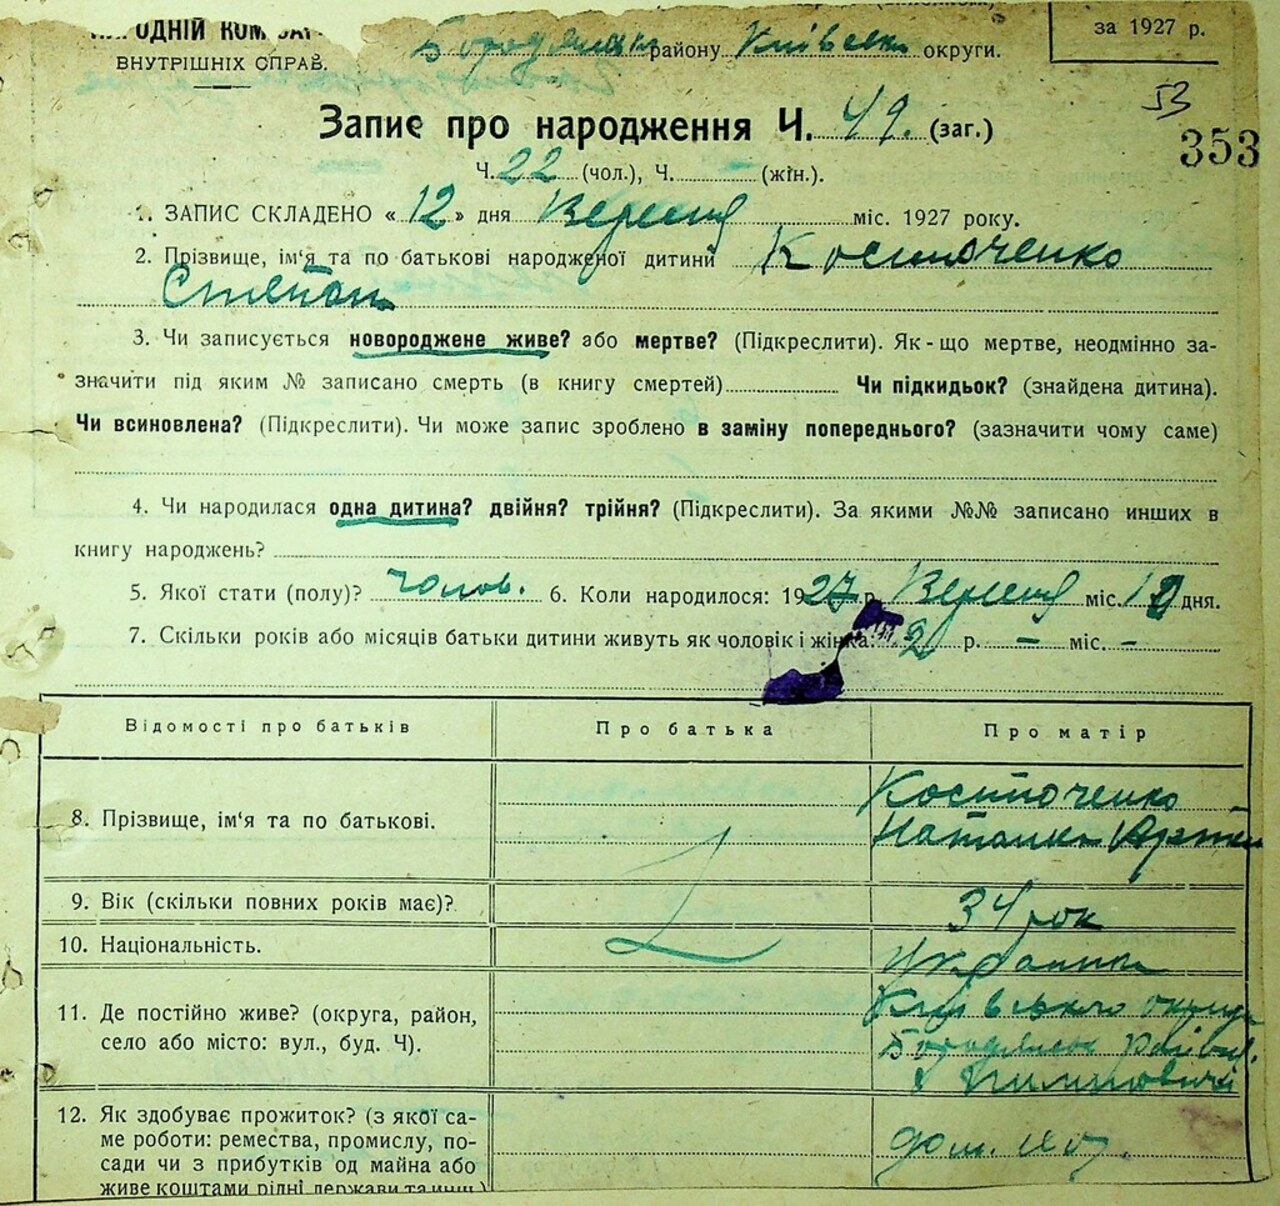 за 1927 р.
Бородянськ району Київськ округи.
ВНУТРІШНІХ СПРАВ.
53
Запис про народження Ч. 49. (заг.)
353
Ч. 22 (чол.), Ч. – (жін.).
1. ЗАПИС СКЛАДЕНО « 12 » дня Вересня міс. 1927 року.
2. Прізвище, ім'я та по батькові народженої дитини Костюченко
Степан
3. Чи записується новороджене живе? або мертве? (Підкреслити). Як-що мертве, неодмінно за-
значити під яким № записано смерть (в книгу смертей) Чи підкидьок? (знайдена дитина).
Чи всиновлена? (Підкреслити). Чи може запис зроблено в заміну попереднього? (зазначити чому саме)
4. Чи народилася одна дитина? двійня? трійня? (Підкреслити). За якими №№ записано инших в
книгу народжень?
5. Якої стати (полу)? чолов. 6. Коли народилося: 1927 р. Вересня міс. дня.
7. Скільки років або місяців батьки дитини живуть як чоловік і жінка: 2 р. – міс. –
Відомості про батьків Про батька Про матір
8. Прізвище, ім'я та по батькові.
Костюченко
Наталка
9. Вік (скільки повних років має)? 34 рок
10. Національність. Українка
11. Де постійно живе? (округа, район,
село або місто: вул., буд. Ч).
Київського округу
Бородянськ району
12. Як здобуває прожиток? (з якої са-
ме роботи: ремества, промислу, по-
сади чи з прибутків од майна або
живе коштами рідні держави та инш.)
дом.